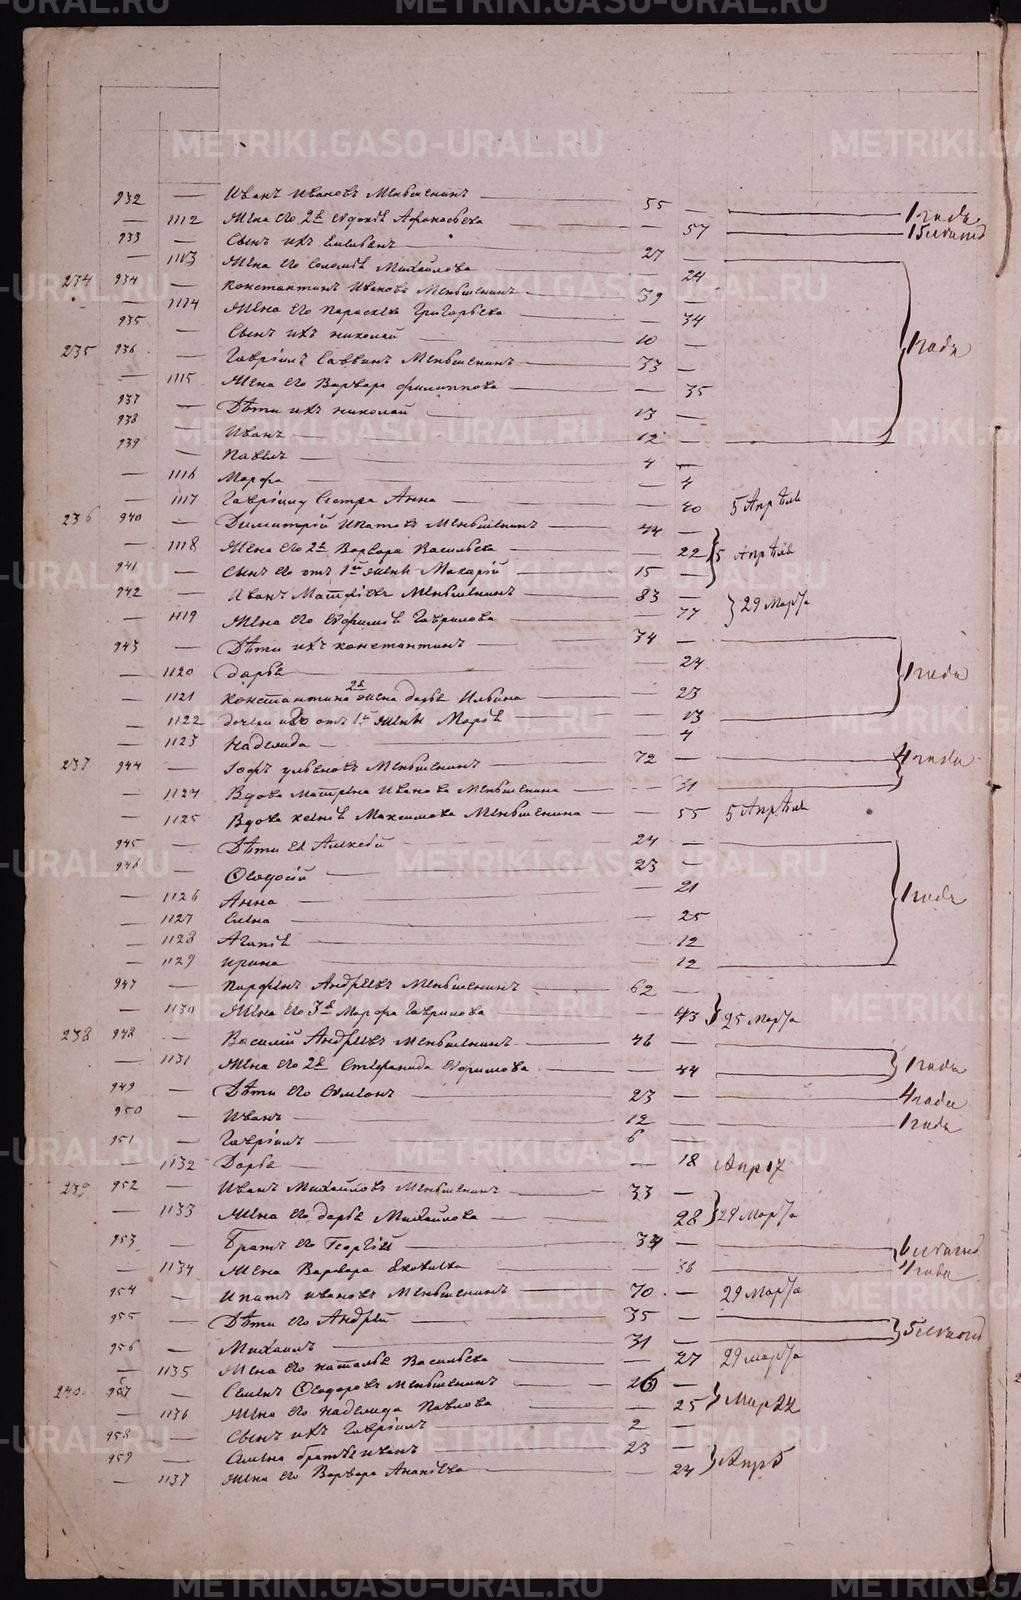 932 — Иванъ Ивановъ Меньшенинъ — 55 —
— 1112 Жена его 2я Евдокія Афанасьева — 57
933 — Сынъ ихъ — 27 —
— 1113 Жена его Соломія Михайлова — 24
234 934 — Константинъ Ивановъ Меньшенинъ — 39 —
— 1114 Жена его Параскева Григорьева — 34
935 — Сынъ ихъ Николай 10 —
235 936 — Гавріилъ Саввинъ Меньшенинъ — 33 —
— 1115 Жена его Варвара Филиппова — 35
937 — Дѣти ихъ Николай — 13 —
938 — Иванъ — 12 —
939 — Павелъ — 4 —
— 1116 Марфа — 4
— 1117 Гавріилу Сестра Анна — 40 5 Апрѣля
236 940 — Димитрій Ипатовъ Меньшенинъ — 44 —
— 1118 Жена его 2я Варвара Васильева — 22 5 Апрѣля
941 — Сынъ его отъ 1й жены Макарій — 15 —
942 — Иванъ Матфѣевъ Меньшенинъ — 83 —
— 1119 Жена его Евфимія Гаврилова — 77 29 Марта
943 — Дѣти ихъ Константинъ — 34 —
— 1120 Дарья — 24
— 1121 Константина 2я жена Дарья Ильина — 23
— 1122 Дочери ихъ отъ 1й жены Марія — 13
— 1123 Надежда — 4
237 944 — Меньшенинъ — 72 —
— 1124 Вдова Матрена Иванова Меньшенина — 31
— 1125 Вдова Ксенія Максимова Меньшенина — 55 5 Апрѣля
945 — Дѣти ея Алексѣй — 24 —
946 — Ѳеодосій — 23 —
— 1126 Анна — 21
— 1127 Елена — 25
— 1128 Агапія — 12
— 1129 Ирина — 12
947 — Парфенъ Андреевъ Меньшенинъ — 62 —
— 1130 Жена его 3я Марфа Гаврилова — 43 25 Марта
238 948 — Василій Андреевъ Меньшенинъ — 46 —
— 1131 Жена его 2я Стефанида Ефимова — 44
949 — Дѣти его Симеонъ — 23 —
950 — Иванъ — 12 —
951 — Гавріилъ — 6
— 1132 Дарья — 18 Апр 17
239 952 — Иванъ Михайловъ Меньшенинъ — 33 —
— 1133 Жена его Дарья Михайлова — 28 29 Марта
953 — Братъ его Георгій — 34 —
— 1134 Жена Варвара Яковлева — 36
954 — Ипатъ Ивановъ Меньшенинъ — 70 — 29 Марта
955 — Дѣти его Андрей — 35 —
956 — Михаилъ — 31 —
— 1135 Жена его Наталья Васильева — 27 29 Марта
240 957 — Семенъ Ѳеодоровъ Меньшенинъ — 26 —
— 1136 Жена его Надежда Павлова — 25 Мар 22
958 — Сынъ ихъ Гавріилъ — 2 —
959 — Семена братъ Иванъ — 23 —
— 1137 Жена его Варвара Ананьева — 24 Апр 5